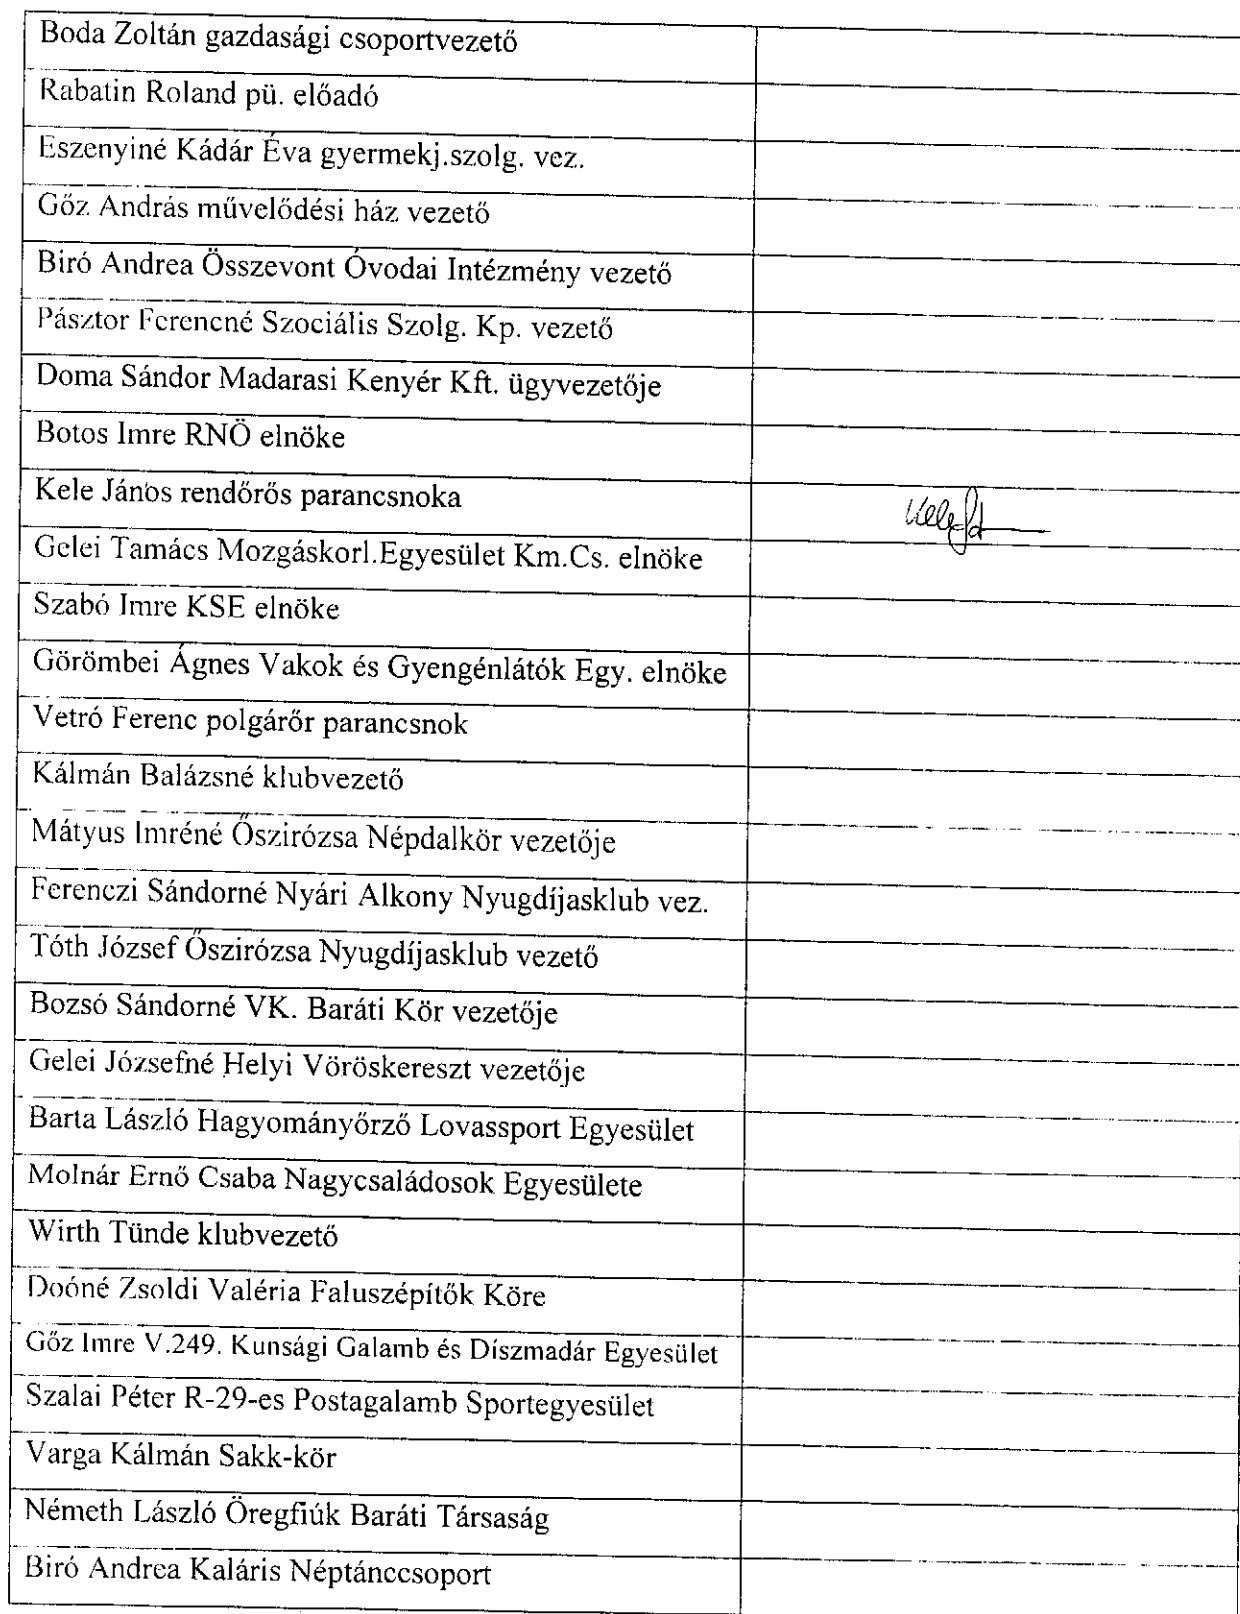 Boda Zoltán gazdasági csoportvezető
Rabatin Roland pü. előadó
Eszenyiné Kádár Éva gyermekj.szolg. vez.
Gőz András művelődési ház vezető
Biró Andrea Összevont Óvodai Intézmény vezető
Pásztor Ferencné Szociális Szolg. Kp. vezető
Doma Sándor Madarasi Kenyér Kft. ügyvezetője
Botos Imre RNÖ elnöke
Kele János rendőrős parancsnoka
Gelei Tamács Mozgáskorl.Egyesület Km.Cs. elnöke
Szabó Imre KSE elnöke
Görömbei Ágnes Vakok és Gyengénlátók Egy. elnöke
Vetró Ferenc polgárőr parancsnok
Kálmán Balázsné klubvezető
Mátyus Imréné Őszirózsa Népdalkör vezetője
Ferenczi Sándorné Nyári Alkony Nyugdíjasklub vez.
Tóth József Őszirózsa Nyugdíjasklub vezető
Bozsó Sándorné VK. Baráti Kör vezetője
Gelei Józsefné Helyi Vöröskereszt vezetője
Barta László Hagyományőrző Lovassport Egyesület
Molnár Ernő Csaba Nagycsaládosok Egyesülete
Wirth Tünde klubvezető
Doóné Zsoldi Valéria Faluszépítők Köre
Gőz Imre V.249. Kunsági Galamb és Díszmadár Egyesület
Szalai Péter R-29-es Postagalamb Sportegyesület
Varga Kálmán Sakk-kör
Németh László Öregfiúk Baráti Társaság
Biró Andrea Kaláris Néptánccsoport